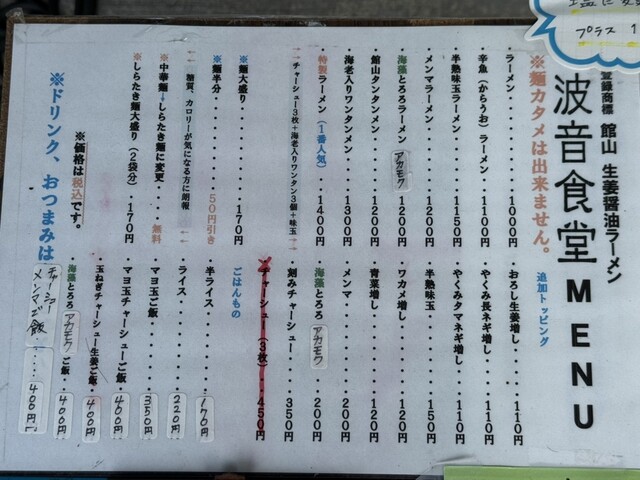 塩に変
プラス 1
登録商標 館山 生姜醤油ラーメン
波音食堂 MENU
※麺カタメは出来ません。
ラーメン・・・・・・・1000円
辛魚（からうお）ラーメン・・・1100円
半熟味玉ラーメン・・・1150円
メンマラーメン・・・・1200円
海藻とろろラーメン アカモク 1200円
館山タンタンメン・・・1200円
海老入りワンタンメン・・・1300円
特製ラーメン（1番人気）・・・1400円
→チャーシュー3枚＋海老入りワンタン3個＋味玉←
※麺大盛り・・・・・・170円
※麺半分・・・・・・50円引き
糖質、カロリーが気になる方に朗報
※中華麺→しらたき麺に変更・・・無料
※しらたき麺大盛り（2袋分）・・170円
※価格は税込です。
※ドリンク、おつまみは
追加トッピング
おろし生姜増し・・・・110円
やくみ長ネギ増し・・・110円
やくみタマネギ増し・・110円
半熟味玉・・・・・・・150円
ワカメ増し・・・・・・120円
青菜増し・・・・・・・120円
メンマ・・・・・・・・200円
海藻とろろ アカモク 200円
刻みチャーシュー・・・350円
チャーシュー（3枚）・・450円
ごはんもの
半ライス・・・・・・170円
ライス・・・・・・・220円
マヨ玉ご飯・・・・・350円
マヨ玉チャーシューご飯・・400円
玉ねぎチャーシュー生姜ご飯・400円
海藻とろろ アカモク ご飯・・400円
チャーシューメンマご飯・・・・400円